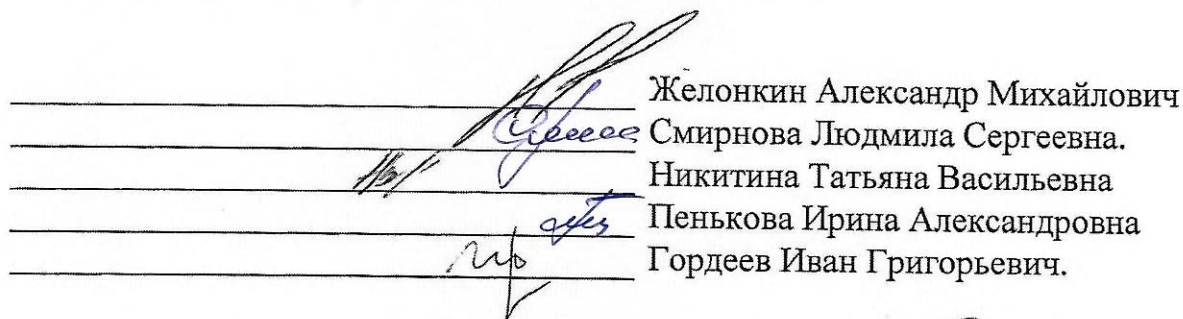 Желонкин Александр Михайлович
Смирнова Людмила Сергеевна.
Никитина Татьяна Васильевна
Пенькова Ирина Александровна
Гордеев Иван Григорьевич.